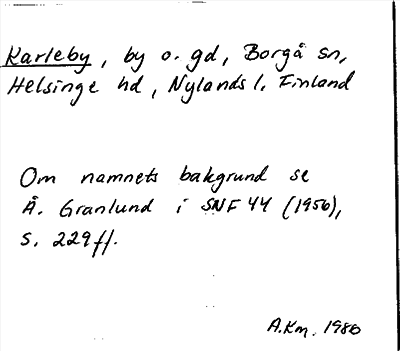 Karleby, by o. gd, Borgå sn,
Helsinge hd, Nylands l, Finland
Om namnets bakgrund se
Å. Granlund i SNF 44 (1956),
s. 229ff.
A.Km. 1980